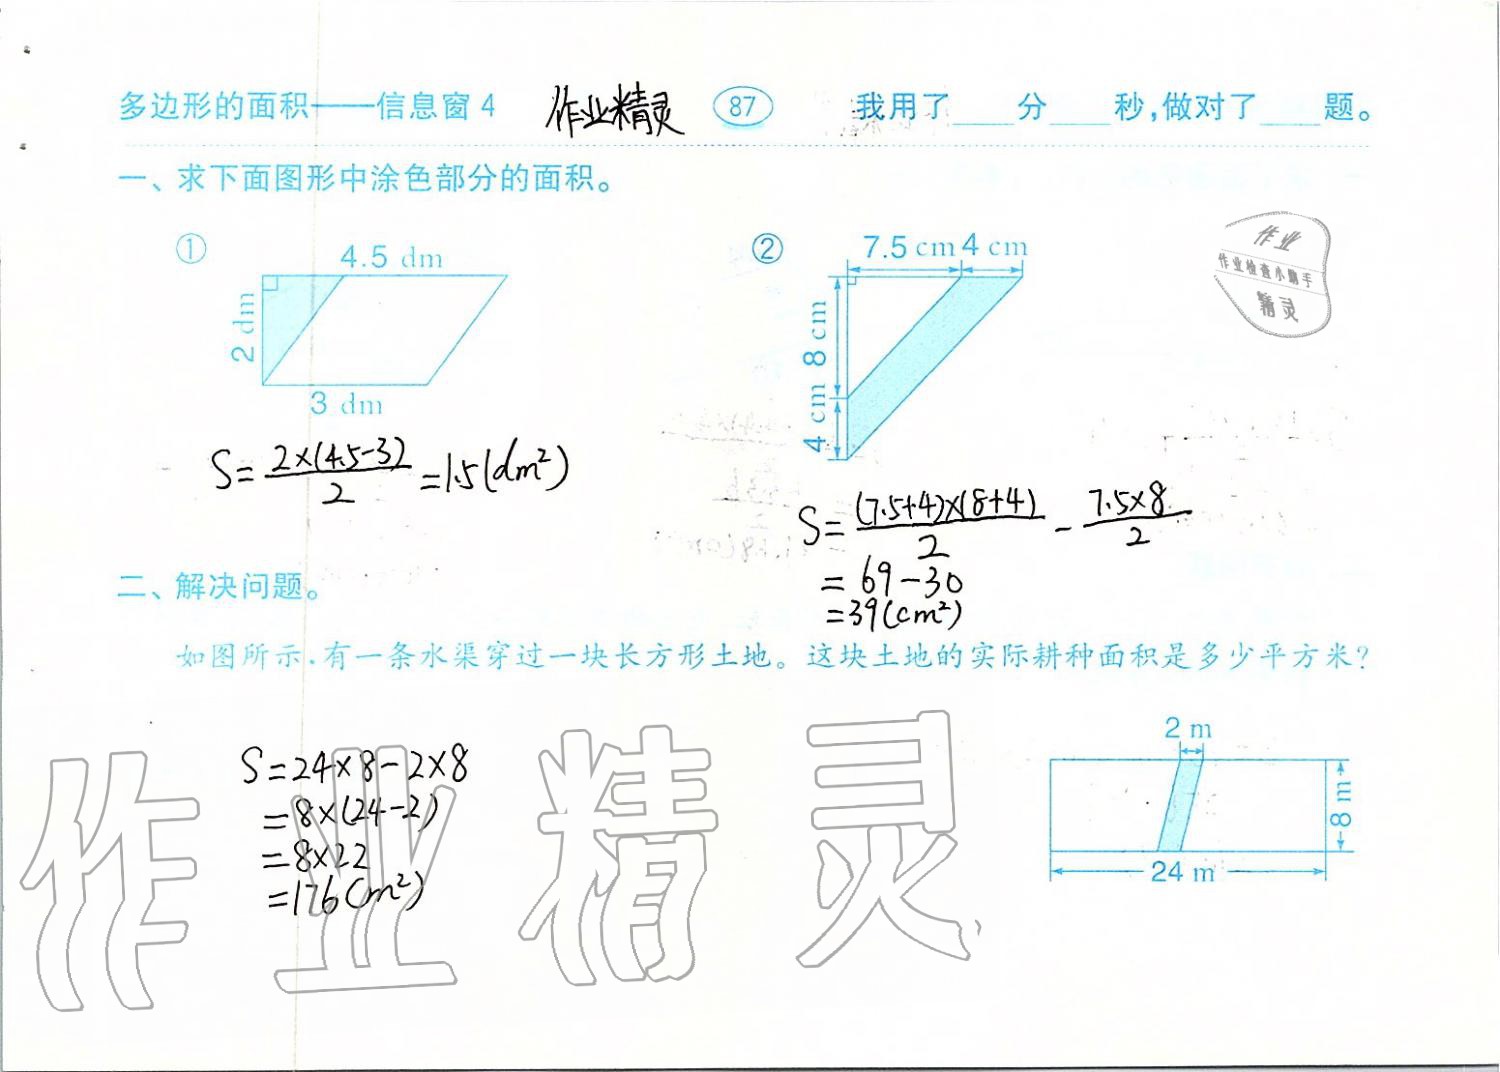 多边形的面积——信息窗4 作业精灵 87 我用了____分____秒,做对了____题。
一、求下面图形中涂色部分的面积。
① 4.5 dm
2 dm
3 dm
S=2×(4.5-3)/2=1.5(dm²)
② 7.5 cm 4 cm
8 cm
4 cm
S=(7.5+4)×(8+4)/2-7.5×8/2
=69-30
=39(cm²)
作业
作业检查小助手
精灵
二、解决问题。
如图所示,有一条水渠穿过一块长方形土地。这块土地的实际耕种面积是多少平方米?
S=24×8-2×8
=8×(24-2)
=8×22
=176(m²)
2 m
8 m
24 m
作业精灵